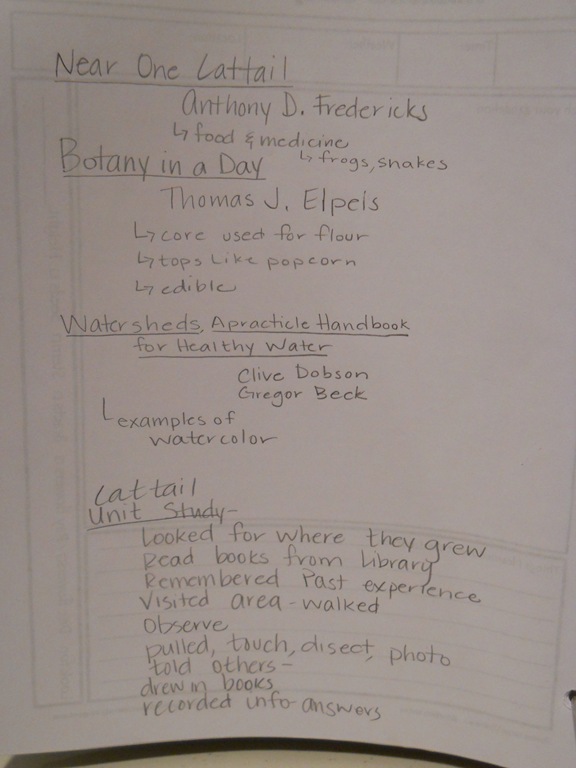 Near One Cattail
Anthony D. Fredericks
↳ food & medicine
↳ frogs, snakes
Botany in a Day
Thomas J. Elpels
↳ core used for flour
↳ tops like popcorn
↳ edible
Watersheds, Apracticle Handbook
for Healthy Water
Clive Dobson
Gregor Beck
examples of
watercolor
Cattail
Unit Study-
Looked for where they grew
Read books from Library
Remembered Past experience
Visited area - walked
Observe
pulled, touch, disect, photo
told others-
drew in books
recorded info-answers